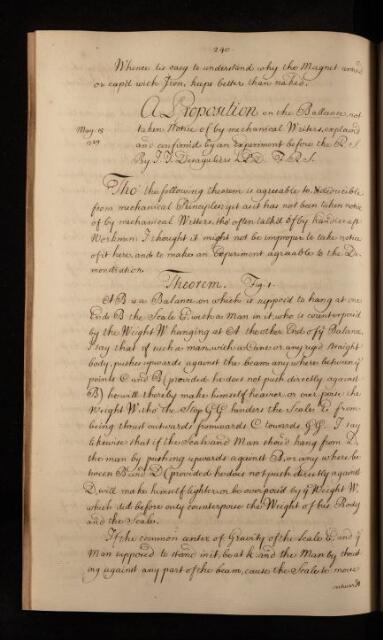 240
Whence tis easy to understand why the Magnet arm'd
or cap'd with Iron, keeps better than naked.
A Proposition on the Ballance, not
May 15
taken Notice of by mechanical Writers, explain'd
and confirm'd by an Experiment before the R. S.
By J. T. Desaguliers L.L.D. F.R.S.
Tho' the following theorem is agreeable to, & deducible
from mechanical Principles; yet as it has not been taken notice
of by mechanical Writers, tho' often talk'd of by handicraft
Workmen I thought it might not be improper to take notice
of it here, and to make an Experiment agreeable to the De-
monstration.
Theorem. Fig. 1.
AB is a Balance, on which is suppos'd to hang at one
End B the Scale E, with a Man in it, who is counterpois'd
by the Weight W hanging at A the other End of ye Balance,
I say that if such a man, with a Cane or any rigid straight
body, pushes upwards against the beam any where between ye
points C and B (provided he does not push directly against
B) he will thereby make himself heavier, or over poise the
Weight W, tho' the Stop GG hinders the Scale E from
being thrust outwards from towards C towards GG. I say
likewise that if the Scale and Man shou'd hang from D,
the man by pushing upwards against B, or any where be-
tween B and D (provided he does not push directly against
D) will make himself lighter, or be overpois'd by ye Weight W,
which did before only counterpoise the Weight of his Body
and the Scale.
If the common center of Gravity of the Scale E, and ye
Man supposed to stand in it, be at K, and the Man by thrust
ing against any part of the beam, cause the Scale to move